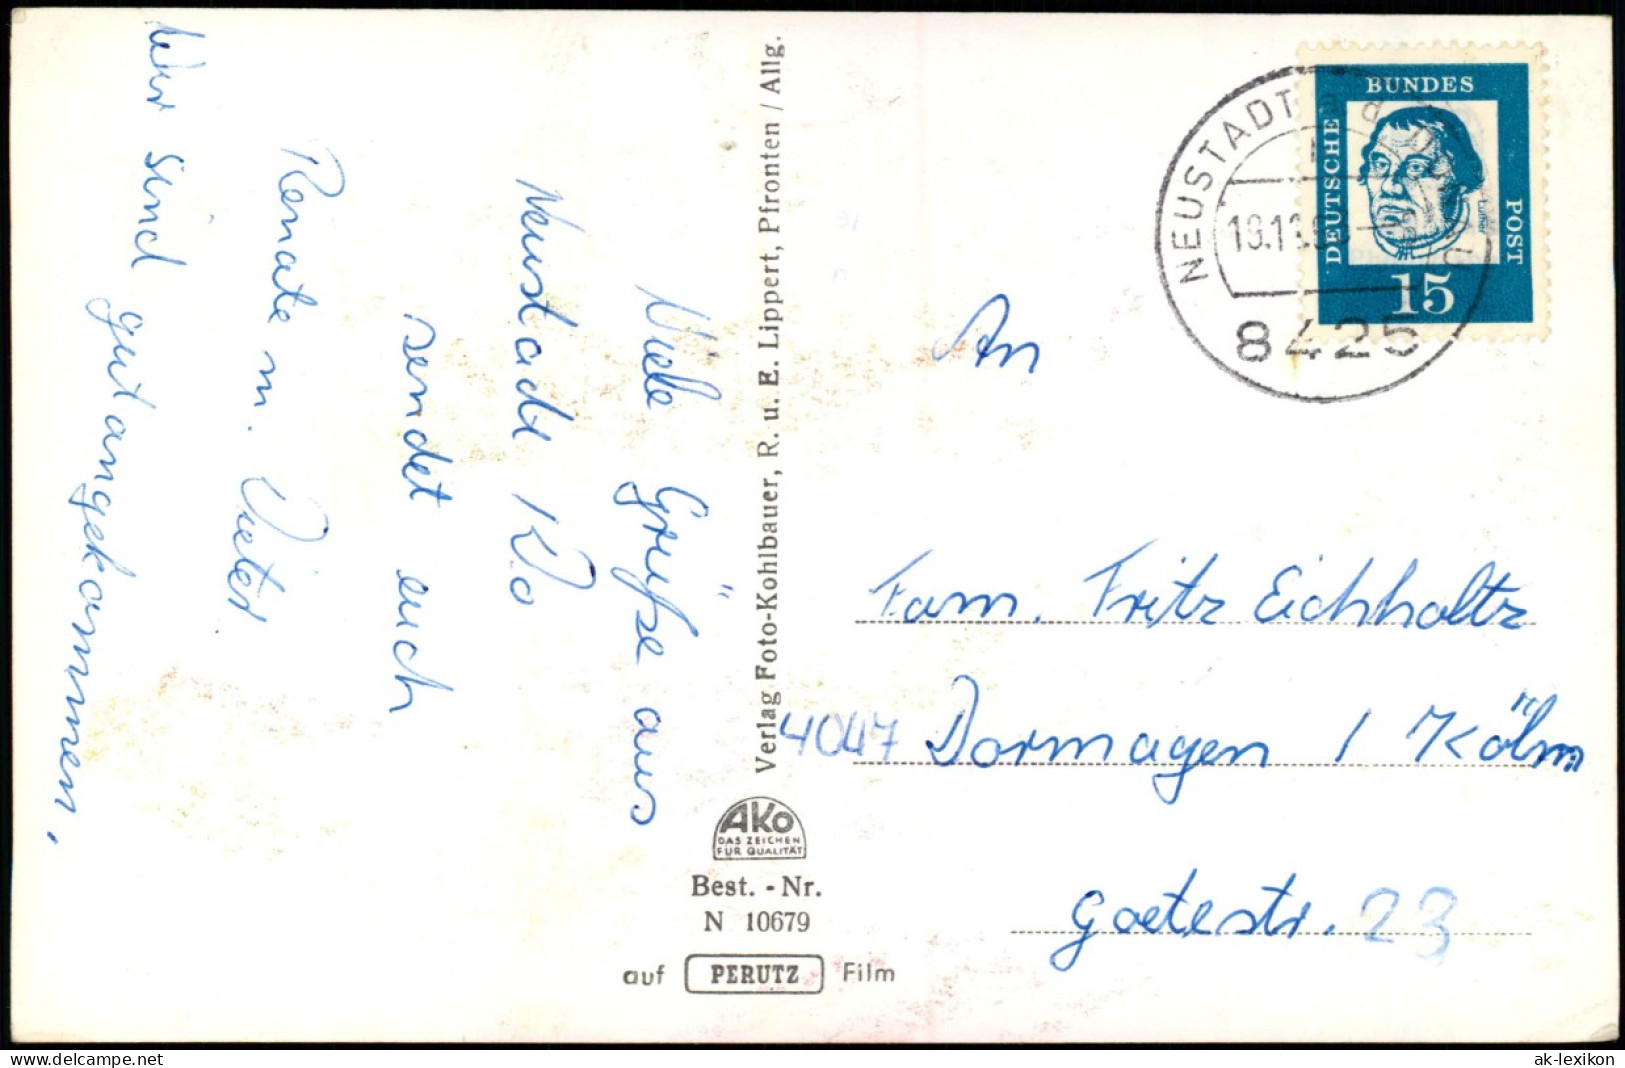 Viele Grüße aus
Neustadt
sendet euch
Renate m.
Wir sind gut angekommen,
Verlag Foto-Kohlbauer, R. u. E. Lippert, Pfronten / Allg.
AKO
DAS ZEICHEN
FÜR QUALITÄT
Best. - Nr.
N 10679
auf PERUTZ Film
NEUSTADT
8425
DEUTSCHE
BUNDES
POST
Luther
15
An
Fam. Fritz Eichholtz
4047 Dormagen / Köln
Goetestr. 23
hippostcard.com
ak-lexikon